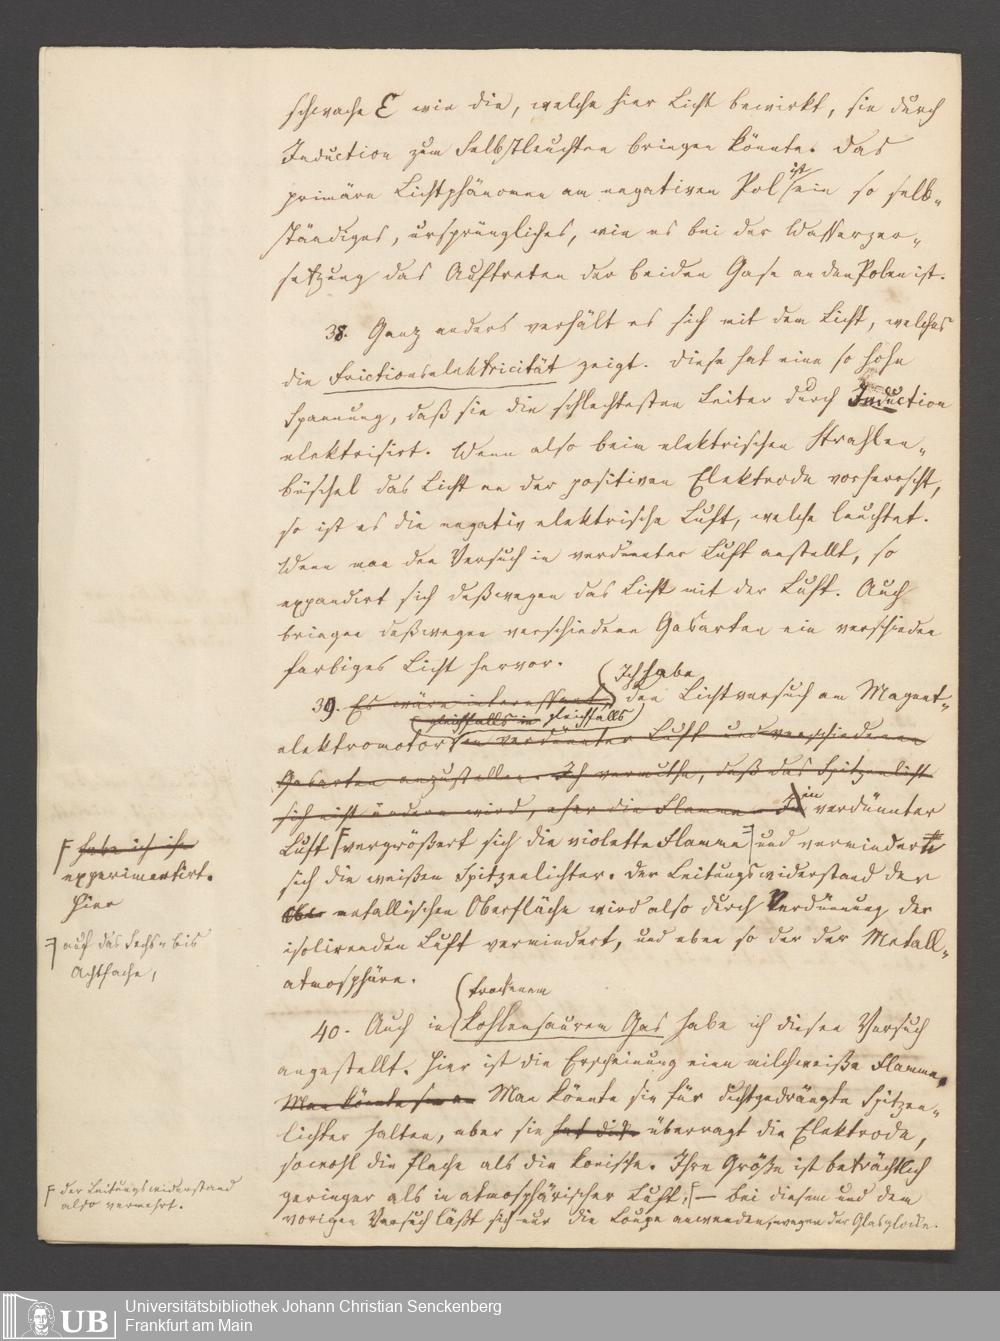 schwache E wie die, welche hier Licht bewirkt, sie durch
Induction zum Selbstleuchten bringen könnte. Das
primäre Lichtphänomen am negativen Pol ist ein so selb-
ständiges, ursprüngliches, wie es bei der Wasserzer-
setzung das Auftreten der beiden Gase an den Polen ist.
38. Ganz anders verhält es sich mit dem Licht, welches
die Frictionselektricität zeigt. Diese hat eine so hohe
Spannung, daß sie die schlechtesten Leiter durch Induction
elektrisirt. Wenn also beim elektrischen Strahlen-
büschel das Licht an der positiven Elektrode vorherrscht,
so ist es die negativ elektrische Luft, welche leuchtet.
Wenn man den Versuch in verdünnter Luft anstellt, so
expandirt sich deßwegen das Licht mit der Luft. Auch
bringen deßwegen verschiedene Gasarten ein verschieden
farbiges Licht hervor.
Ich habe
39. Es wäre interessant den Lichtversuch am Magnet-
gleichfalls in gleichfalls
elektromotor in verdünnter Luft und verschiedenen
Gasarten anzustellen. Ich vermuthe, daß das Spitzenlicht
sich nicht ändern wird, eher die Flamme. In in verdünnter
Luft vergrößert sich die violette Flamme und vermindert
sich die weißen Spitzenlichter. Der Leitungswiderstand der
metallischen Oberfläche wird also durch Verdünnung der
isolirenden Luft vermindert, und eben so der der Metall-
atmosphäre.
habe ich
experimentirt.
Hier
auf das Sechs- bis
Achtfache,
trockenem
40. Auch in kohlensaurem Gas habe ich diesen Versuch
angestellt. Hier ist die Erscheinung eine milchweiße Flamme.
Man könnte Man könnte sie für dichtgedrängte Spitzen-
lichter halten, aber sie überragt die Elektrode,
sowohl die flache als die konische. Ihre Größe ist beträchtlich
geringer als in atmosphärischer Luft; — Bei diesem und dem
vorigen Versuch läßt sich nur die Loupe anwenden, wegen der Glasglocke.
der Leitungswiderstand
also vermehrt.
UB
Universitätsbibliothek Johann Christian Senckenberg
Frankfurt am Main